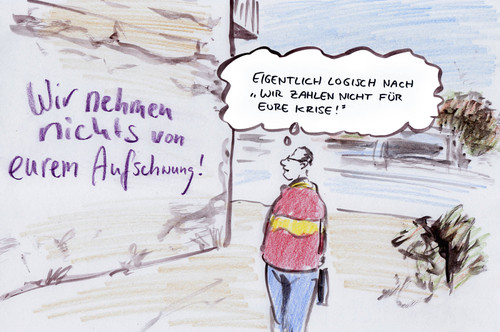 Wir nehmen
nichts von
eurem Aufschwung!
EIGENTLICH LOGISCH NACH
„WIR ZAHLEN NICHT FÜR
EURE KRISE!"